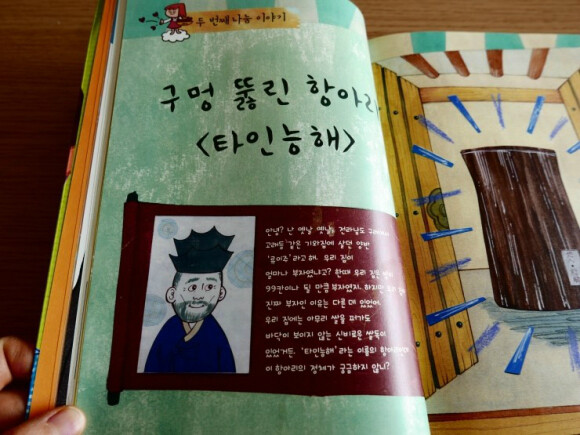 두 번째 나눔 이야기
구멍 뚫린 항아리
<타인능해>
안녕? 난 옛날 옛날, 전라남도
고래등 같은 기와집에 살던 양반
'류이주'라고 해. 우리 집이
얼마나 부자였냐고? 한때 우리 집은
99칸이나 될 만큼 부자였지. 하지만
진짜 부자인 이유는 다른 데 있었어.
우리 집에는 아무리 쌀을 퍼가도
바닥이 보이지 않는 신비로운 쌀독이
있었거든. '타인능해'라는 이름의
이 항아리의 정체가 궁금하지 않니?